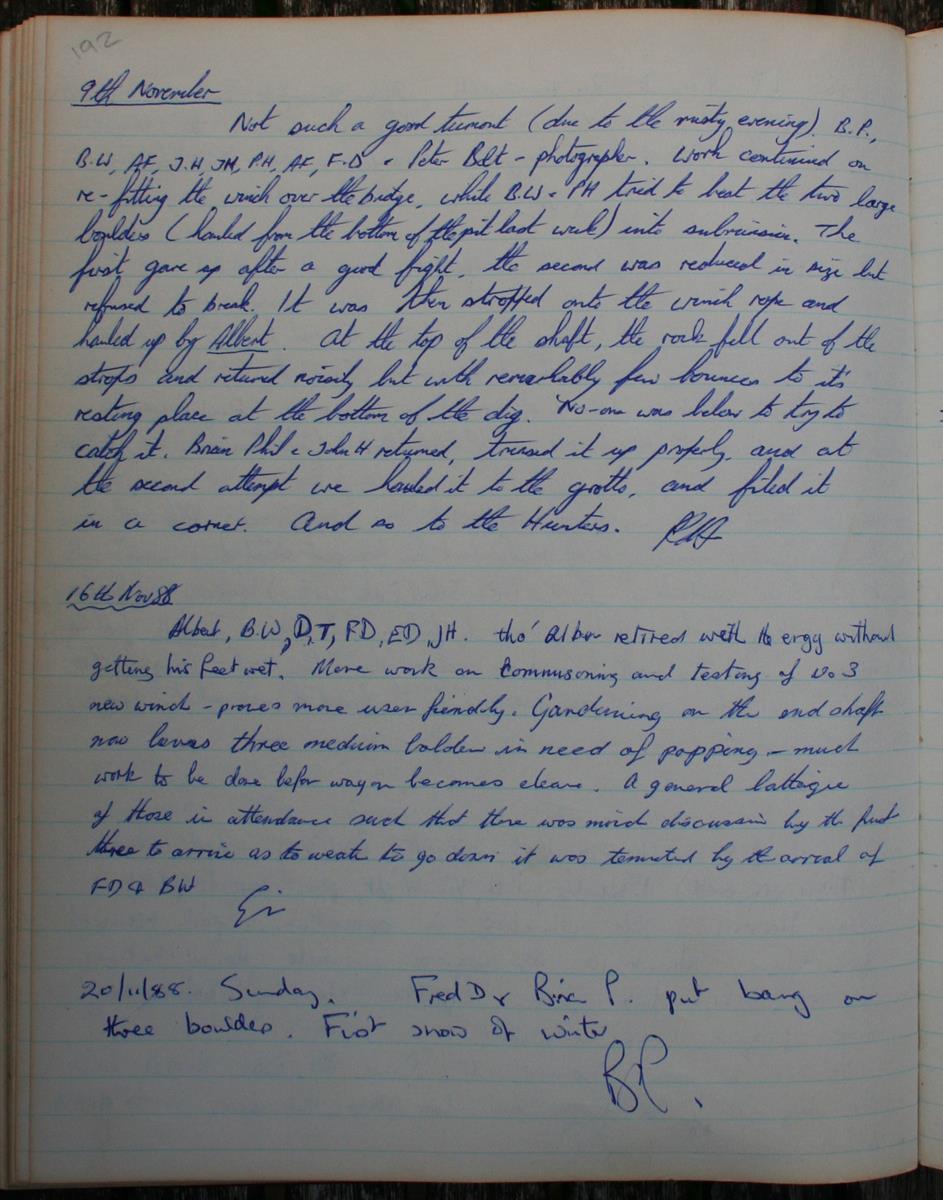 192
9th November
Not such a good turnout (due to the misty evening). B.P.,
B.W, AF, J.H, JM, PH, AF, F.D & Peter Bolt - photographer. Work continued on
re-fitting the winch over the bridge, while B.W & PH tried to beat the two large
boulders (hauled from the bottom of the pit last week) into submission. The
first gave up after a good fight, the second was reduced in size but
refused to break. It was then stropped onto the winch rope and
hauled up by Albert. At the top of the shaft, the rock fell out of the
strops and returned noisily but with remarkably few bounces to it's
resting place at the bottom of the dig. No-one was below to try to
catch it. Brian Phil & John H returned, trussed it up properly, and at
the second attempt we hauled it to the grotto, and filed it
in a corner. And so to the Hunters.
16th Nov 88
Albert, B.W, D.T, FD, ED, JH. tho' Alber retired with
getting his feet wet. More work on commusoning and testing of No 3
new winch - proves more user fiendly. Gardening on the end shaft
now leaves three medium bolders in need of popping - much
work to be done befor way on becomes cleare. A general lattigue
of those in attendance such that there was much discussion by the first
three to arrive as to weath to go down it was temnated by the arrival of
FD & BW
20/11/88. Sunday. Fred D & Brian P. put bang on
three boulders. First snow of winter
BP.